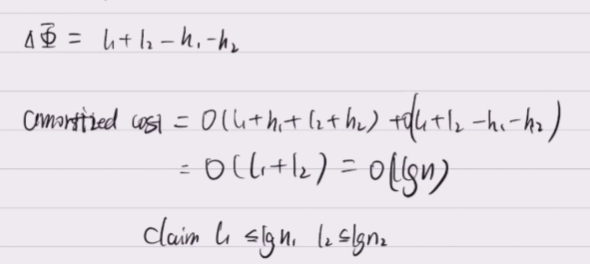 ΔΦ = l₁+l₂-h₁-h₂
amortized cost = O(l₁+h₁+l₂+h₂) + O(l₁+l₂-h₁-h₂)
= O(l₁+l₂) = O(lgn)
claim l₁ ≤ lgn₁ l₂ ≤ lgn₂